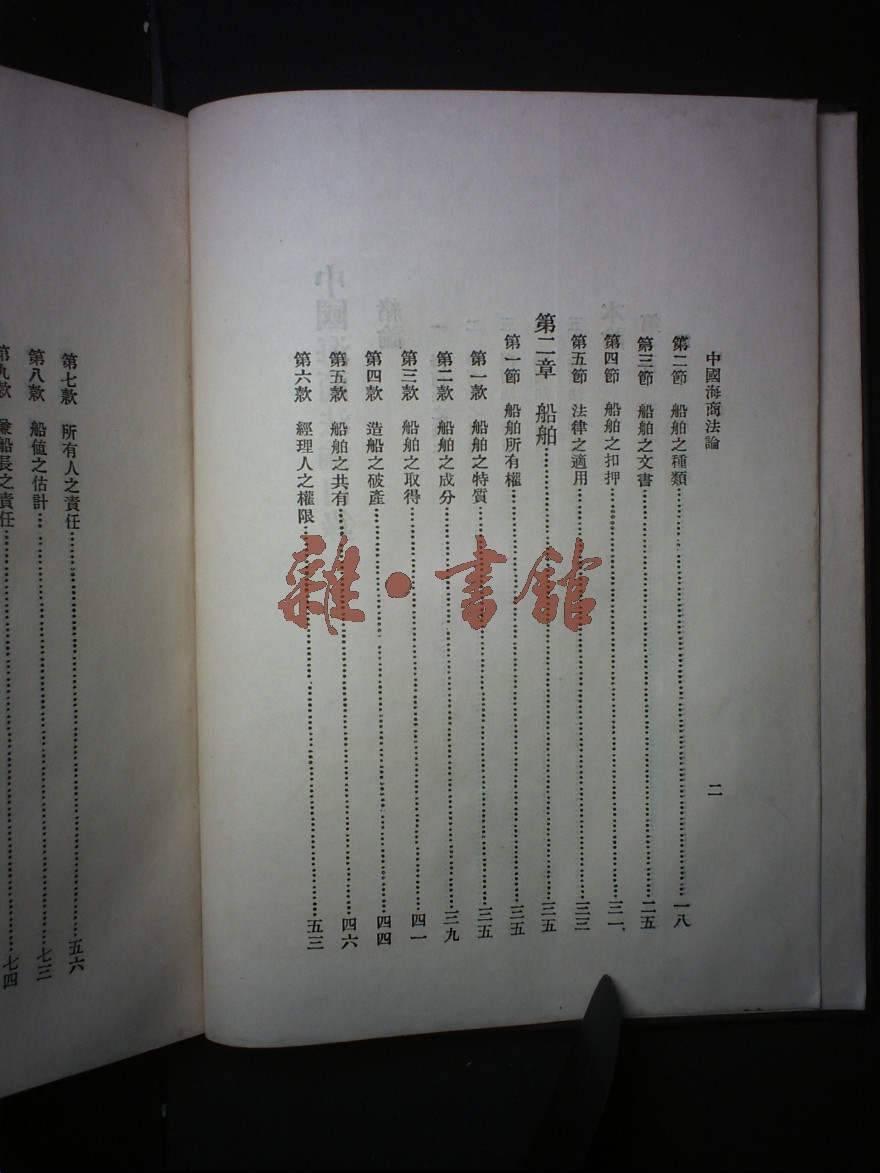 中國海商法論
二
第二節　船舶之種類……一八
第三節　船舶之文書……二五
第四節　船舶之扣押……三一
第五節　法律之適用……三三
第二章　船舶……三五
第一節　船舶所有權……三五
第一款　船舶之特質……三五
第二款　船舶之成分……三九
第三款　船舶之取得……四一
第四款　造船之破產……四四
第五款　船舶之共有……四六
第六款　經理人之權限……五三
第七款　所有人之責任……五六
第八款　船值之估計……七三
第九款　兼船長之責任……七四
雜·書館